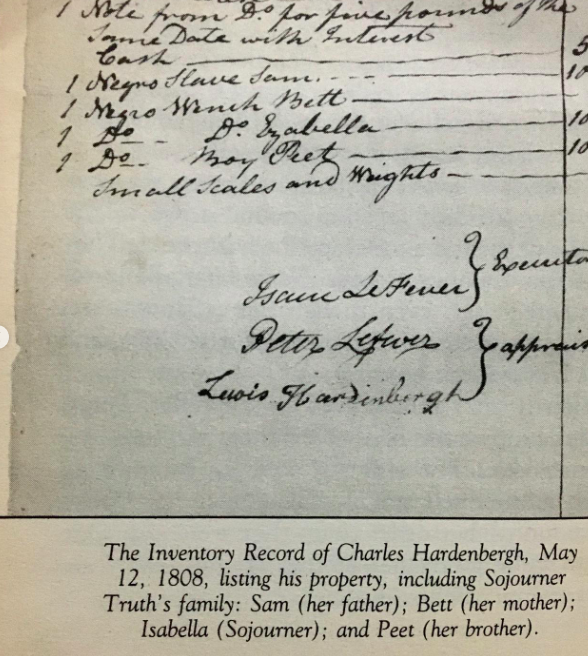 1 Note from Do. for five pounds of the
Same Date with Interest
Cash 5
1 Negro Slave Sam. 10
1 Negro Wench Bett
1 Do. Do. Ezabella 10
1 Do. Boy Peet 10
Small Scales and Weights
Isaac LeFever } Executo
Peter Lefever } apprais
Lewis Hardenbergh
The Inventory Record of Charles Hardenbergh, May
12, 1808, listing his property, including Sojourner
Truth's family: Sam (her father); Bett (her mother);
Isabella (Sojourner); and Peet (her brother).